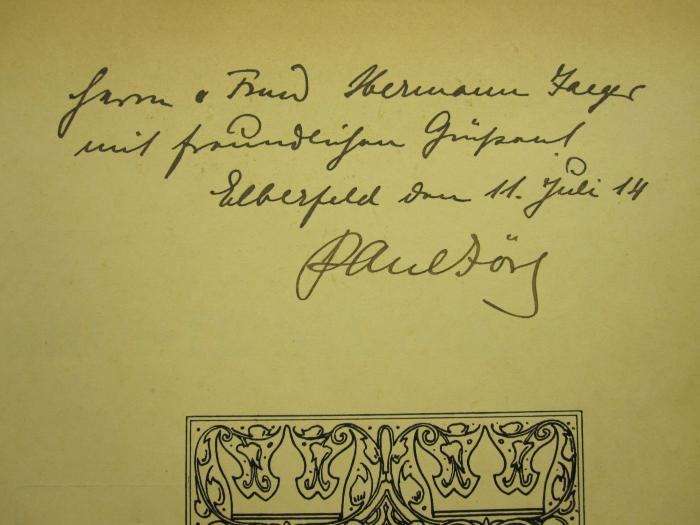 Herrn u Frau Hermann Jaeger
mit freundlichen Grüßen
Elberfeld den 11. Juli 14
Paul Jörg